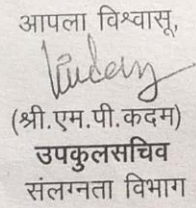 आपला विश्वासू,
(श्री.एम.पी.कदम)
उपकुलसचिव
संलग्नता विभाग